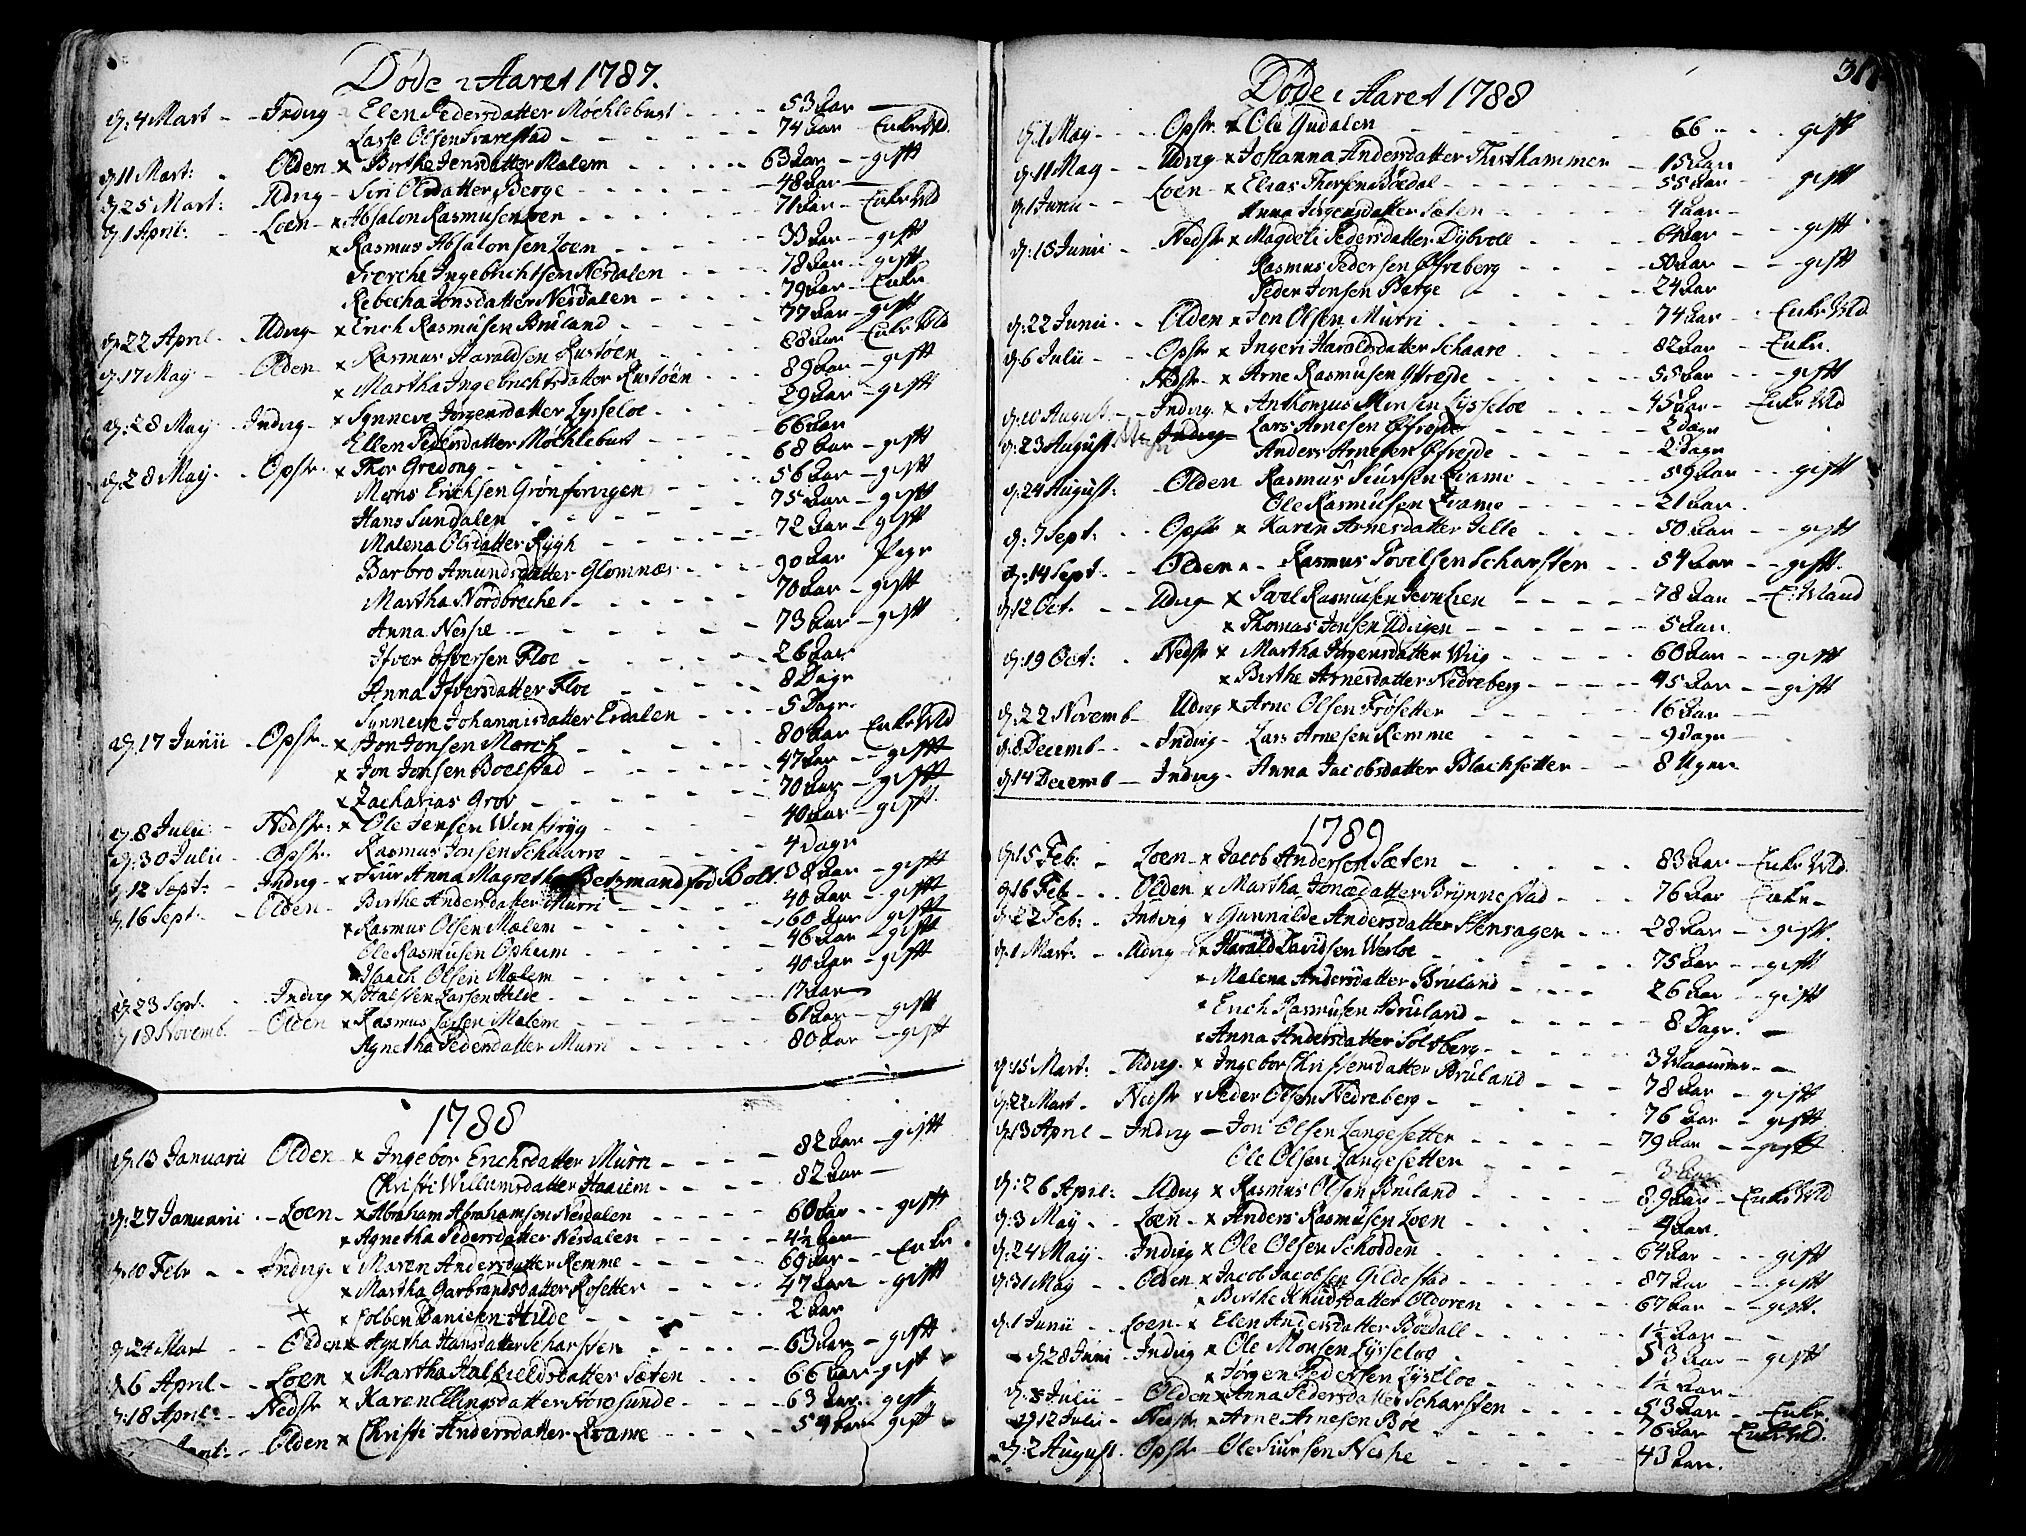 Døde i Aaret 1787.
d. 4 Mart - - Indvig - Elen Pedersdatter Møchlebust - - - - 53 Aar -
Lasse Olsen Svarestad - - - - 74 Aar - Enke Md.
d. 11 Mart: - Olden x Birthe Jensdatter Malem - - - - 63 Aar - gift
d. 25 Mart: - Udvig - Siri Olsdatter Berge - - - - 48 Aar -
d. 1 April: - Loen - x Absalon Rasmusen Loen - - - - 71 Aar - Enke Md
x Rasmus Absalonsen Loen - - - - 33 Aar - gift
Ingebrichtsen Nesdalen - - - - 78 Aar - gift
Rebecha Jonsdatter Nesdalen - - - - 79 Aar - Enke.
d. 22 April - Udvig - x Erich Rasmusen Bruland - - - - 77 Aar - gift
d. 17 May - Olden - x Rasmus Haraldsen Rustøen - - - - 88 Aar Enke Md
x Martha Ingebrichtsdatter Rustøen - - - - 89 Aar - gift
d. 28 May - Indvig - x Synneve Jørgensdatter Lysseloe - - - - 29 Aar - gift
Ellen Pedersdatter Møchlebust - - - - 66 Aar
d. 28 May - Opstr. x Thor Gredong - - - - 68 Aar - gift
Mons Erichsen Grønfurvigen - - - - 56 Aar - gift
Hans Sundalen - - - - 75 Aar - gift
Malena Olsdatter Rygh - - - - 72 Aar - gift
Barbro Amundsdatter Glomnæs - - - - 90 Aar Pige
Martha Nordbreche - - - - 70 Aar - gift
Anna Nesse - - - - 73 Aar - gift
Ifver Ifversen Floe - - - - 26 Aar
Anna Ifversdatter Floe - - - - 8 Dage
Synneve Johannisdatter Erdalen - - - - 5 Dage
d. 17 Junii - Opstr. - x Jon Jonsen March - - - - 80 Aar Enke Md
x Jon Jonsen Boelstad - - - - 47 Aar - gift
x Zacharias Grov - - - - 70 Aar - gift
d. 8 Julii - Nedstr: x Ole Jensen - - - - 40 Aar - gift
d. 30 Julii - Opstr. Rasmus Jonsen Schaarre - - - - 4 Dage
d. 12 Sept: - Indvig - x Anna Magrethe fød Bolt. 38 Aar - gift
d. 16 Sept. - Olden - Birthe Andersdatter Murri - - - - 40 Aar - gift
x Rasmus Olsen Mælem - - - - 60 Aar - gift
Ole Rasmusen Opheim - - - - 46 Aar - gift
Isaach Olsen Mælem - - - - 40 Aar - gift
d. 23 Sept. - Indvig x Halsten Larsen Hilde - - - - 17 Aar
d. 18 Novemb. - Olden x Rasmus Larsen Malem - - - - 61 Aar - gift
Agnetha Pedersdatter Murri - - - - 80 Aar - gift
1788
d. 13 Januarii Olden x Ingebor Erichsdatter Murri - - - - 82 Aar - gift
Christi Willumsdatter Haaiem - - - - 82 Aar -
d. 27 Januarii - Loen - x Abraham Abrahamsen Nesdalen - - - - 60 Aar - gift
x Agnetha Pedersdatter Nesdalen - - - - 4½ Aar
d. 10 Febr - - Indvig. x Maren Andersdatter Remme - - - - 69 Aar - Enke.
x Martha Garbrandsdatter Rosetter - - - - 47 Aar - gift
x x Danielsen Hilde - - - - 2 Aar
d. 24 Mart - Olden x Agntha Hansdatter Scharsten - - - - 63 Aar - gift
d. 6 April - - Loen x Martha Sæten - - - - 66 Aar - gift
d. 18 April - Nedstr x Karen Ellingsdatter - - - - 63 Aar. gift
- Olden x Christi Andersdatter Qvame - - - - 54 Aar gift
Døde i Aaret 1788
d. 1 May - - Opstr. x Ole Gudalen - - - - 66 - - gift
d. 11 May - - Udvig x Johanna Andersdatter Thisthammer - 15 Aar
d. 1 Junii - - Loen - x Elias Thorsen Bødal - - - - 55 Aar - gift
Anna Jørgensdatter Sæten - - - - 4 Aar -
d. 15 Junii - Nedstr x Magdeli Pedersdatter Dybvoll - - - - 64 Aar - gift
Rasmus Pedersen Øfreberg - - - - 50 Aar - - gift
Peder Jonsen Berge - - - - 24 Aar
d. 22 Junii - - Olden x Jon Olsen Murri - - - - 74 Aar - Enke Md
d. 6 Julii - - Opstr x Ingeri Haraldsdatter Schaare - - - - 82 Aar - Enke.
Nedstr - x Arne Rasmusen - - - - 55 Aar - - gift
d. 10 August - - Indvig. x Anthonius Monsen Lysseloe - - - - 45 Aar - Enke Md
d. 23 August: Indvig Lars Arnesen - - - - 2 Dage
Anders Arnesen - - - - 2 Dage
d. 24 August: - Olden Rasmus Siursen Qvame - - - - 59 Aar - - gift
Ole Rasmusen Qvame - - - - 21 Aar.
d. 7 Sept: - - Opstr x Karen Arnesdatter Telle - - - - 50 Aar - gift
d. 14 Sept. - Olden - Rasmus Povelsen Scharsten - - 54 Aar - - gift.
d. 12 Oct. - - Udvig x Rasmusen - - - - 78 Aar - E. Mand
x Thomas Jensen Udvigen - - - - 5 Aar.
d. 19 Oct: - Nedstr x Martha Jørgensdatter Wiig - - - - 60 Aar - - gift
x Birthe Arnesdatter Nedreberg - - - - 45 Aar - - gift
d. 22 Novemb - Udvig x Arne Olsen Frøsetter - - - - 16 Aar -
d. 8 Decemb - - Indvig - Lars Arnesen Remme - - - - 9 Dage -
d. 14 Decemb - Indvig - Anna Jacobsdatter Blachsetter - - 8 Uger
1789
d. 15 Feb: - Loen - x Jacob Andersen Sæten - - - - 83 Aar - Enke Md.
d. 16 Feb - - Olden x Martha Jonædatter Brynnestad - - - - 76 Aar Enke -
d. 22 Feb: - Indvig x Gunnilde Andersdatter Stensagen - - - 28 Aar - gift.
d. 1 Mart. - Udvig x Harald Davidsen Wesloe - - - - 75 Aar - gift
x Malena Andersdatter Bruland - - - - 26 Aar - gift
x Erich Rasmusen Bruland - - - - 8 Dage. -
x Anna Andersdatter Solsberg - - - - 3 Maaneder -
d. 15 Mart: - Udvig. x Ingebor Christensdatter Bruland - - - 78 Aar - gift
d. 22 Mart - Nedstr x Peder Olsen Nedreberg - - - - 76 Aar - gift
d. 13 April - Indvig - Jon Olsen Langesetter - - - - 79 Aar - gift
Ole Olsen Langesetter - - - - 3 Aar
d. 26 April: - Udvig x Rasmus Olsen Bruland - - - - 89 Aar - Enke Md
d. 3 May - - Loen - x Anders Rasmusen Loen - - - - 4 Aar.
d. 24 May - Indvig x Ole Olsen Schodden - - - - 64 Aar - - gift
d. 31 May - Olden x Jacob Jacobsen Gildestad - - - - 87 Aar - - gift
x Birthe Knudsdatter Oldøren - - - - 67 Aar - gift.
d. 1 Junii - Loen - x Elen Andersdatter Bødall - - - - 1½ Aar -
d. 28 Juni - Indvig x Ole Monsen Lysseloe - - - - 53 Aar - gift
x Jørgen Pedersen Lysseloe - - - - 1½ Aar -
d. 8 Julii - Olden x Anna Pedersdatter Scharsten - - - - 53 Aar - Enke.
d. 12 Julii - Nedstr x Arne Arnesen Bøe - - - - 76 Aar Enke Md.
d. 2 August. Opstr - Ole Siursen Nesse - - - - 43 Aar.